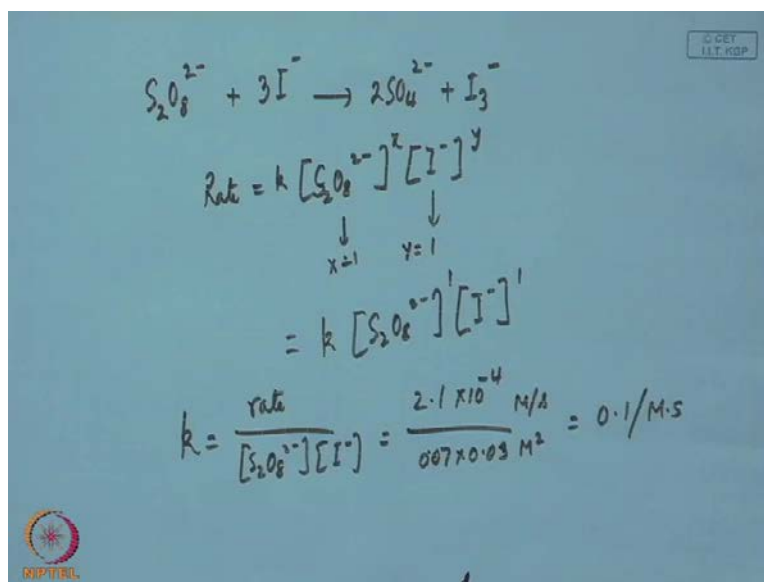 © CET
I.I.T. KGP
S₂O₈²⁻ + 3I⁻ → 2SO₄²⁻ + I₃⁻
Rate = k [S₂O₈²⁻]ˣ [I⁻]ʸ
↓ ↓
x=1 y=1
= k [S₂O₈²⁻]¹ [I⁻]¹
k = rate / [S₂O₈²⁻][I⁻] = 2.1 × 10⁻⁴ M/s / 0.07 × 0.03 M² = 0.1/M·S
NPTEL